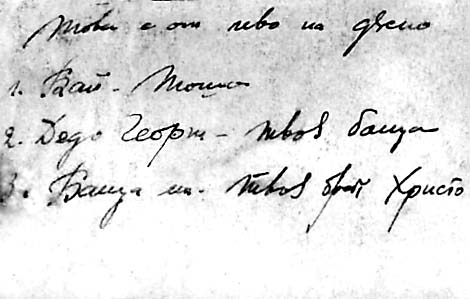 Това е от лево на дясно
1. Бай - Тошо
2. Дедо Георги - твоя баща
3. Баща ми - твоя брат Христо